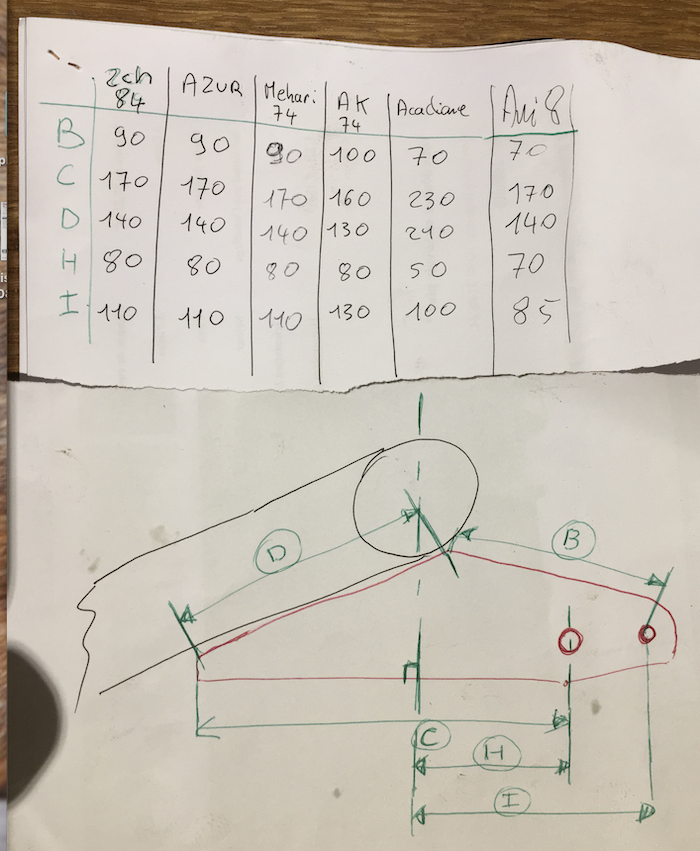 2ch AZUR Mehari AK Acadiane Ami 8
84 74 74
B 90 90 90 100 70 70
C 170 170 170 160 230 170
D 140 140 140 130 210 140
H 80 80 80 80 50 70
I 110 110 110 130 100 85
D B
C
H
I